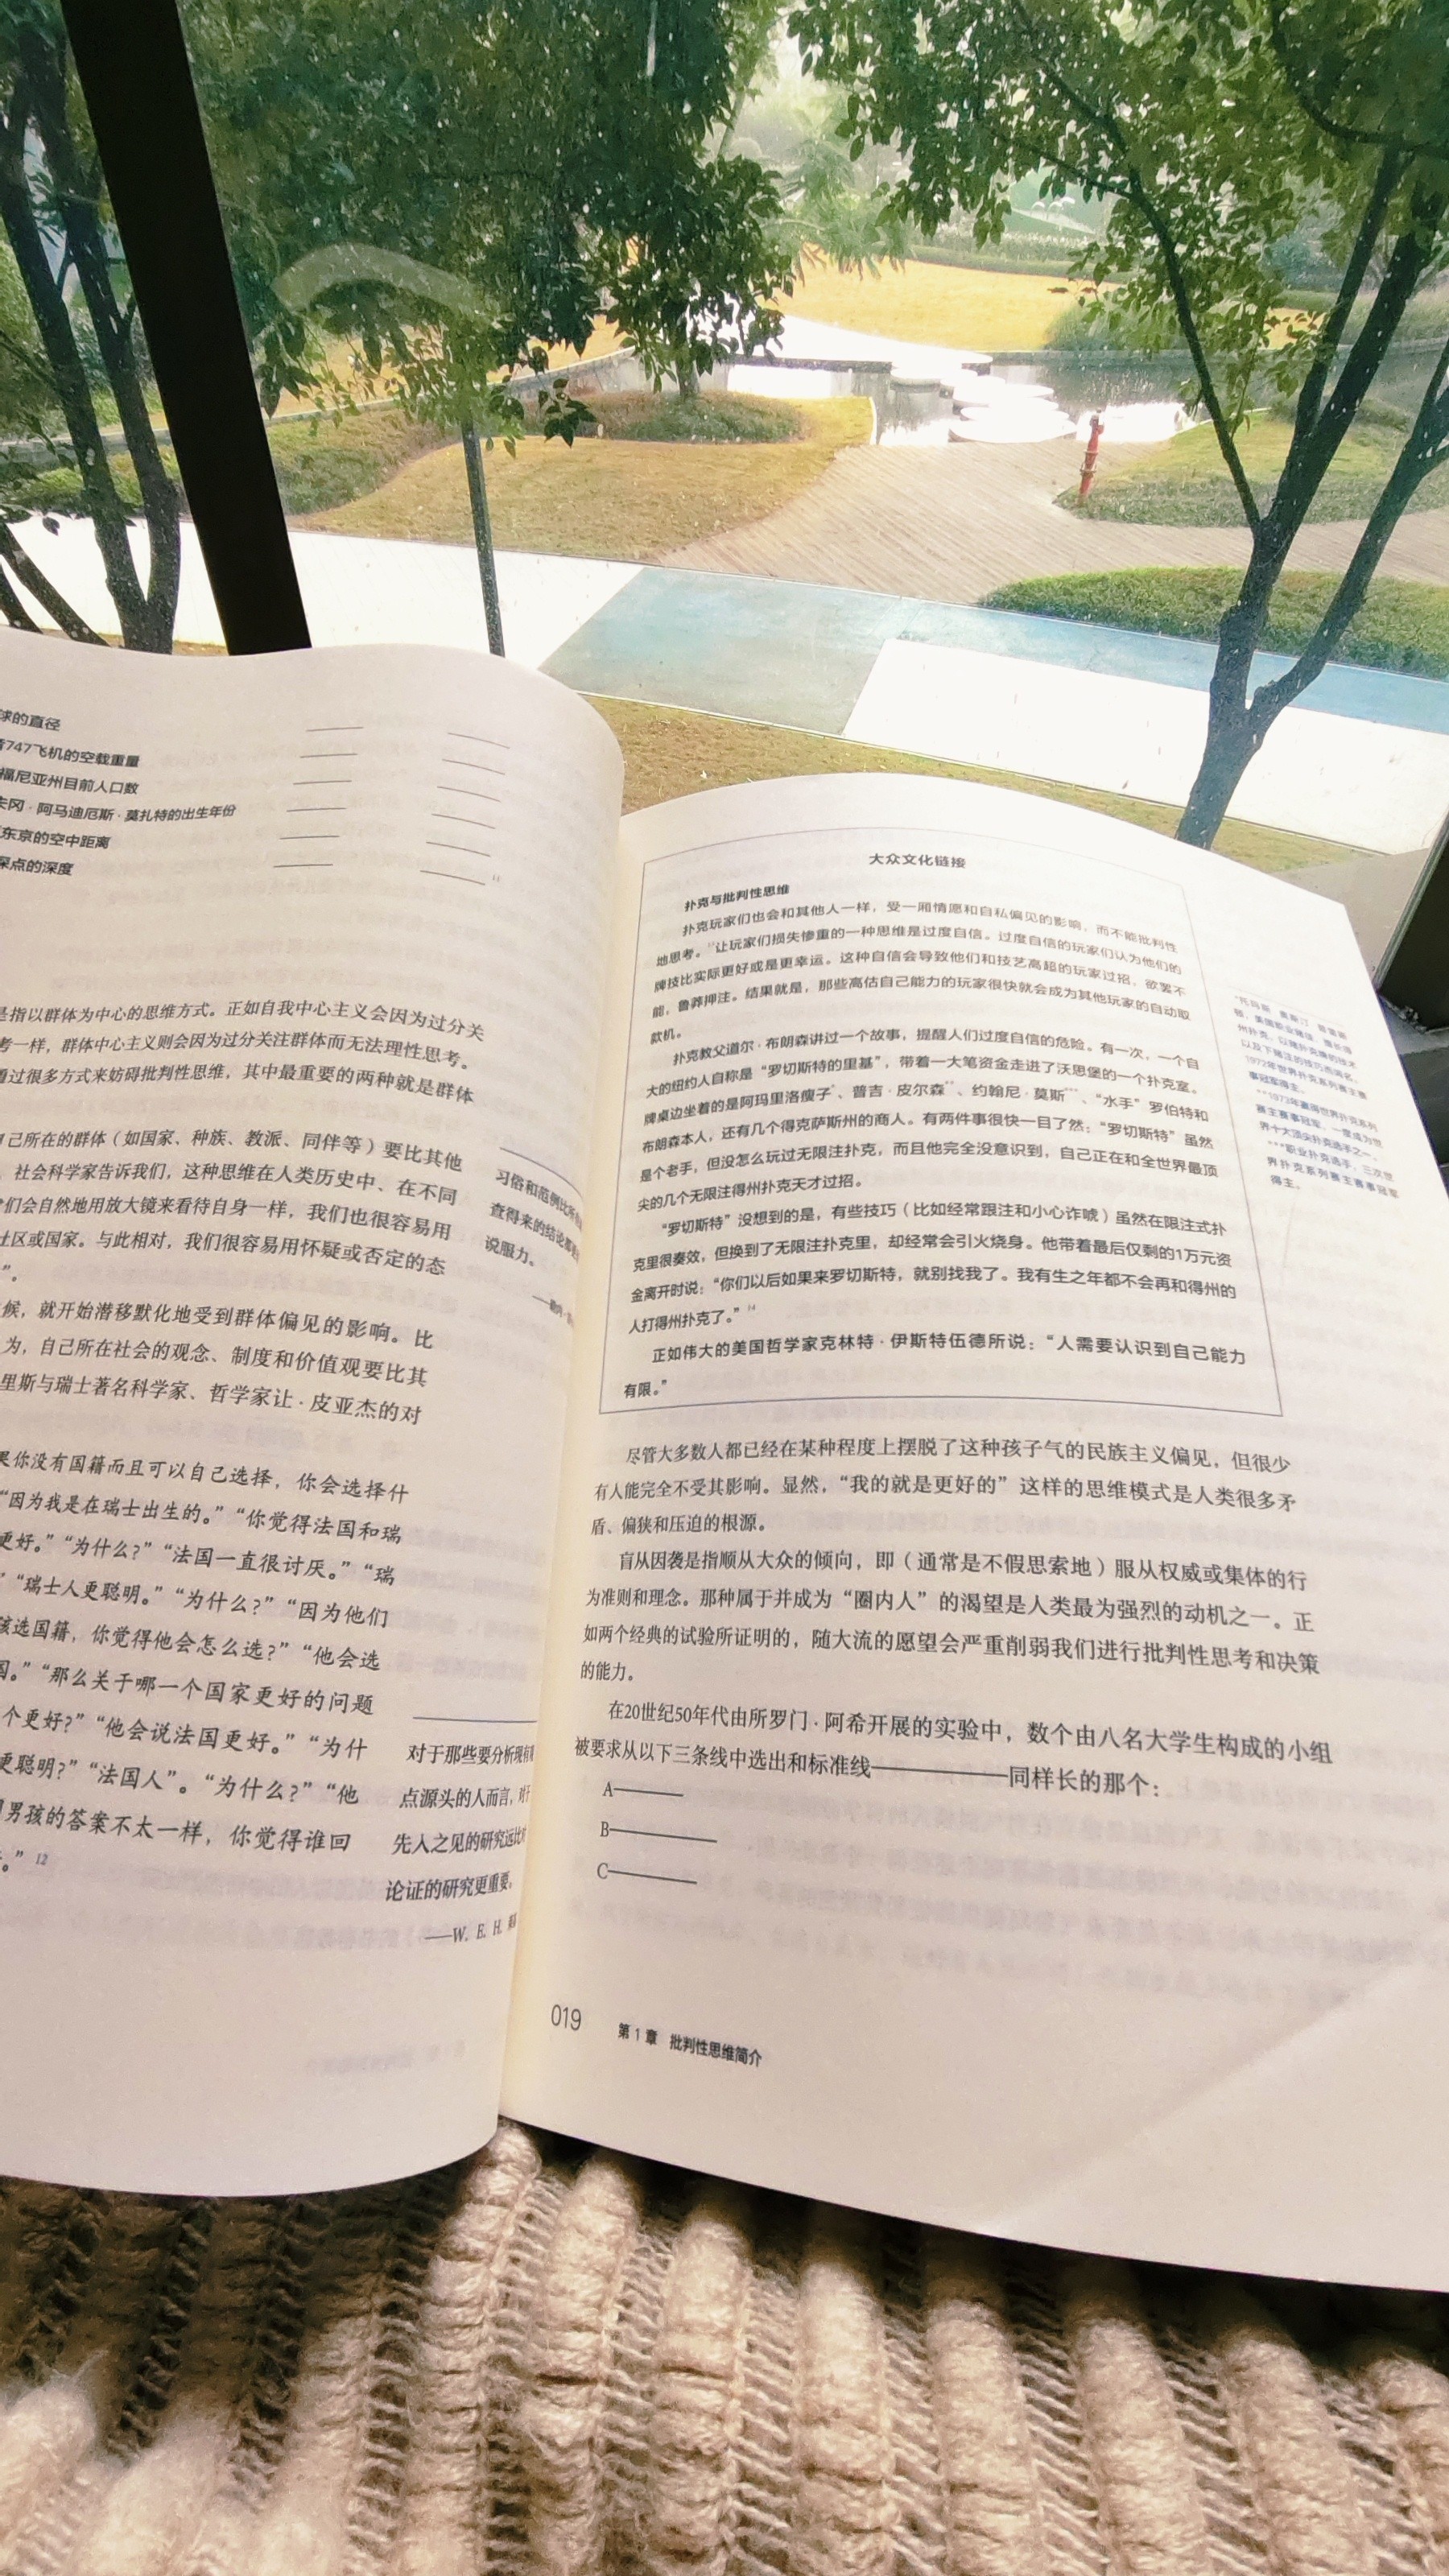 球的直径
747飞机的空载重量
福尼亚州目前人口数
夫冈·阿马迪厄斯·莫扎特的出生年份
东京的空中距离
深点的深度
11
是指以群体为中心的思维方式。正如自我中心主义会因为过分关
考一样，群体中心主义则会因为过分关注群体而无法理性思考。
通过很多方式来妨碍批判性思维，其中最重要的两种就是群体
自己所在的群体（如国家、种族、教派、同伴等）要比其他
社会科学家告诉我们，这种思维在人类历史中、在不同
们会自然地用放大镜来看待自身一样，我们也很容易用
社区或国家。与此相对，我们很容易用怀疑或否定的态
”。
候，就开始潜移默化地受到群体偏见的影响。比
为，自己所在社会的观念、制度和价值观要比其
里斯与瑞士著名科学家、哲学家让·皮亚杰的对
果你没有国籍而且可以自己选择，你会选择什
“因为我是在瑞士出生的。”“你觉得法国和瑞
更好。”“为什么？”“法国一直很讨厌。”“瑞
”“瑞士人更聪明。”“为什么？”“因为他们
该选国籍，你觉得他会怎么选？”“他会选
国。”“那么关于哪一个国家更好的问题
个更好？”“他会说法国更好。”“为什
更聪明？”“法国人”。“为什么？”“他
男孩的答案不太一样，你觉得谁回
。” 12
习俗和范例比
查得来的结论
说服力。
对于那些要分析现有
点源头的人而言，对
先入之见的研究远比
论证的研究更重要。
——W. E. H.
大众文化链接
扑克与批判性思维
扑克玩家们也会和其他人一样，受一厢情愿和自私偏见的影响，而不能批判性
地思考。13让玩家们损失惨重的一种思维是过度自信。过度自信的玩家们认为他们的
牌技比实际更好或是更幸运。这种自信会导致他们和技艺高超的玩家过招，欲罢不
能，鲁莽押注。结果就是，那些高估自己能力的玩家很快就会成为其他玩家的自动取
款机。
扑克教父道尔·布朗森讲过一个故事，提醒人们过度自信的危险。有一次，一个自
大的纽约人自称是“罗切斯特的里基”，带着一大笔资金走进了沃思堡的一个扑克室。
牌桌边坐着的是阿玛里洛瘦子*、普吉·皮尔森**、约翰尼·莫斯***、“水手”罗伯特和
布朗森本人，还有几个得克萨斯州的商人。有两件事很快一目了然：“罗切斯特”虽然
是个老手，但没怎么玩过无限注扑克，而且他完全没意识到，自己正在和全世界最顶
尖的几个无限注得州扑克天才过招。
“罗切斯特”没想到的是，有些技巧（比如经常跟注和小心诈唬）虽然在限注式扑
克里很奏效，但换到了无限注扑克里，却经常会引火烧身。他带着最后仅剩的1万元资
金离开时说：“你们以后如果来罗切斯特，就别找我了。我有生之年都不会再和得州的
人打得州扑克了。”14
正如伟大的美国哲学家克林特·伊斯特伍德所说：“人需要认识到自己能力
有限。”
州扑克，以
以及下赌注的技巧而闻名，
1972年世界扑克系列赛主赛
事冠军得主。
**1973年赢得世界扑克系列
赛主赛事冠军，一度成为世
界十大顶尖扑克选手之一。
***职业扑克选手，三次世
界扑克系列赛主赛事冠军
得主。
尽管大多数人都已经在某种程度上摆脱了这种孩子气的民族主义偏见，但很少
有人能完全不受其影响。显然，“我的就是更好的”这样的思维模式是人类很多矛
盾、偏狭和压迫的根源。
盲从因袭是指顺从大众的倾向，即（通常是不假思索地）服从权威或集体的行
为准则和理念。那种属于并成为“圈内人”的渴望是人类最为强烈的动机之一。正
如两个经典的试验所证明的，随大流的愿望会严重削弱我们进行批判性思考和决策
的能力。
在20世纪50年代由所罗门·阿希开展的实验中，数个由八名大学生构成的小组
被要求从以下三条线中选出和标准线————同样长的那个：
A——
B———
C———
019 第 1 章 批判性思维简介